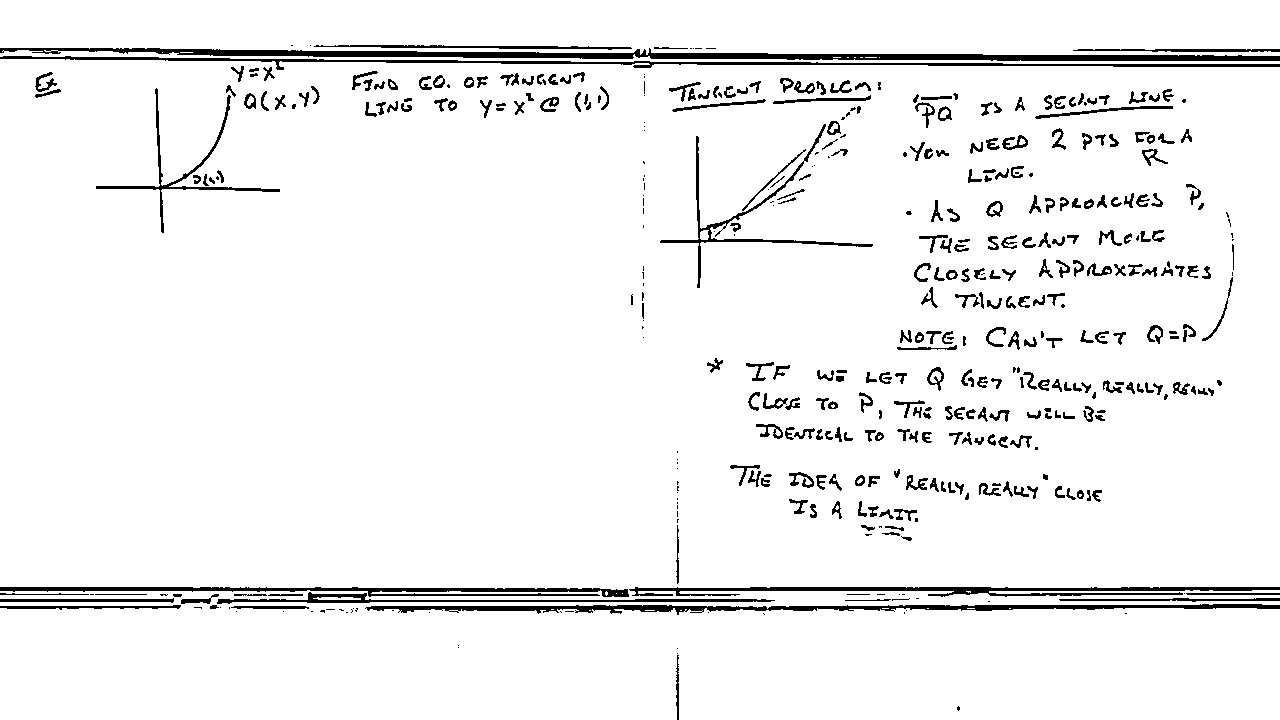 Ex
Y=X²
Q(X,Y)
P(1,1)
FIND EQ. OF TANGENT
LINE TO Y=X² @ (1,1)
TANGENT PROBLEM:
Q
P
"PQ" IS A SECANT LINE.
• YOU NEED 2 PTS FOR A
LINE.
• AS Q APPROACHES P,
THE SECANT MORE
CLOSELY APPROXIMATES
A TANGENT.
NOTE: CAN'T LET Q=P
* IF WE LET Q GET "REALLY, REALLY, REALLY"
CLOSE TO P, THE SECANT WILL BE
IDENTICAL TO THE TANGENT.
THE IDEA OF "REALLY, REALLY" CLOSE
IS A LIMIT.